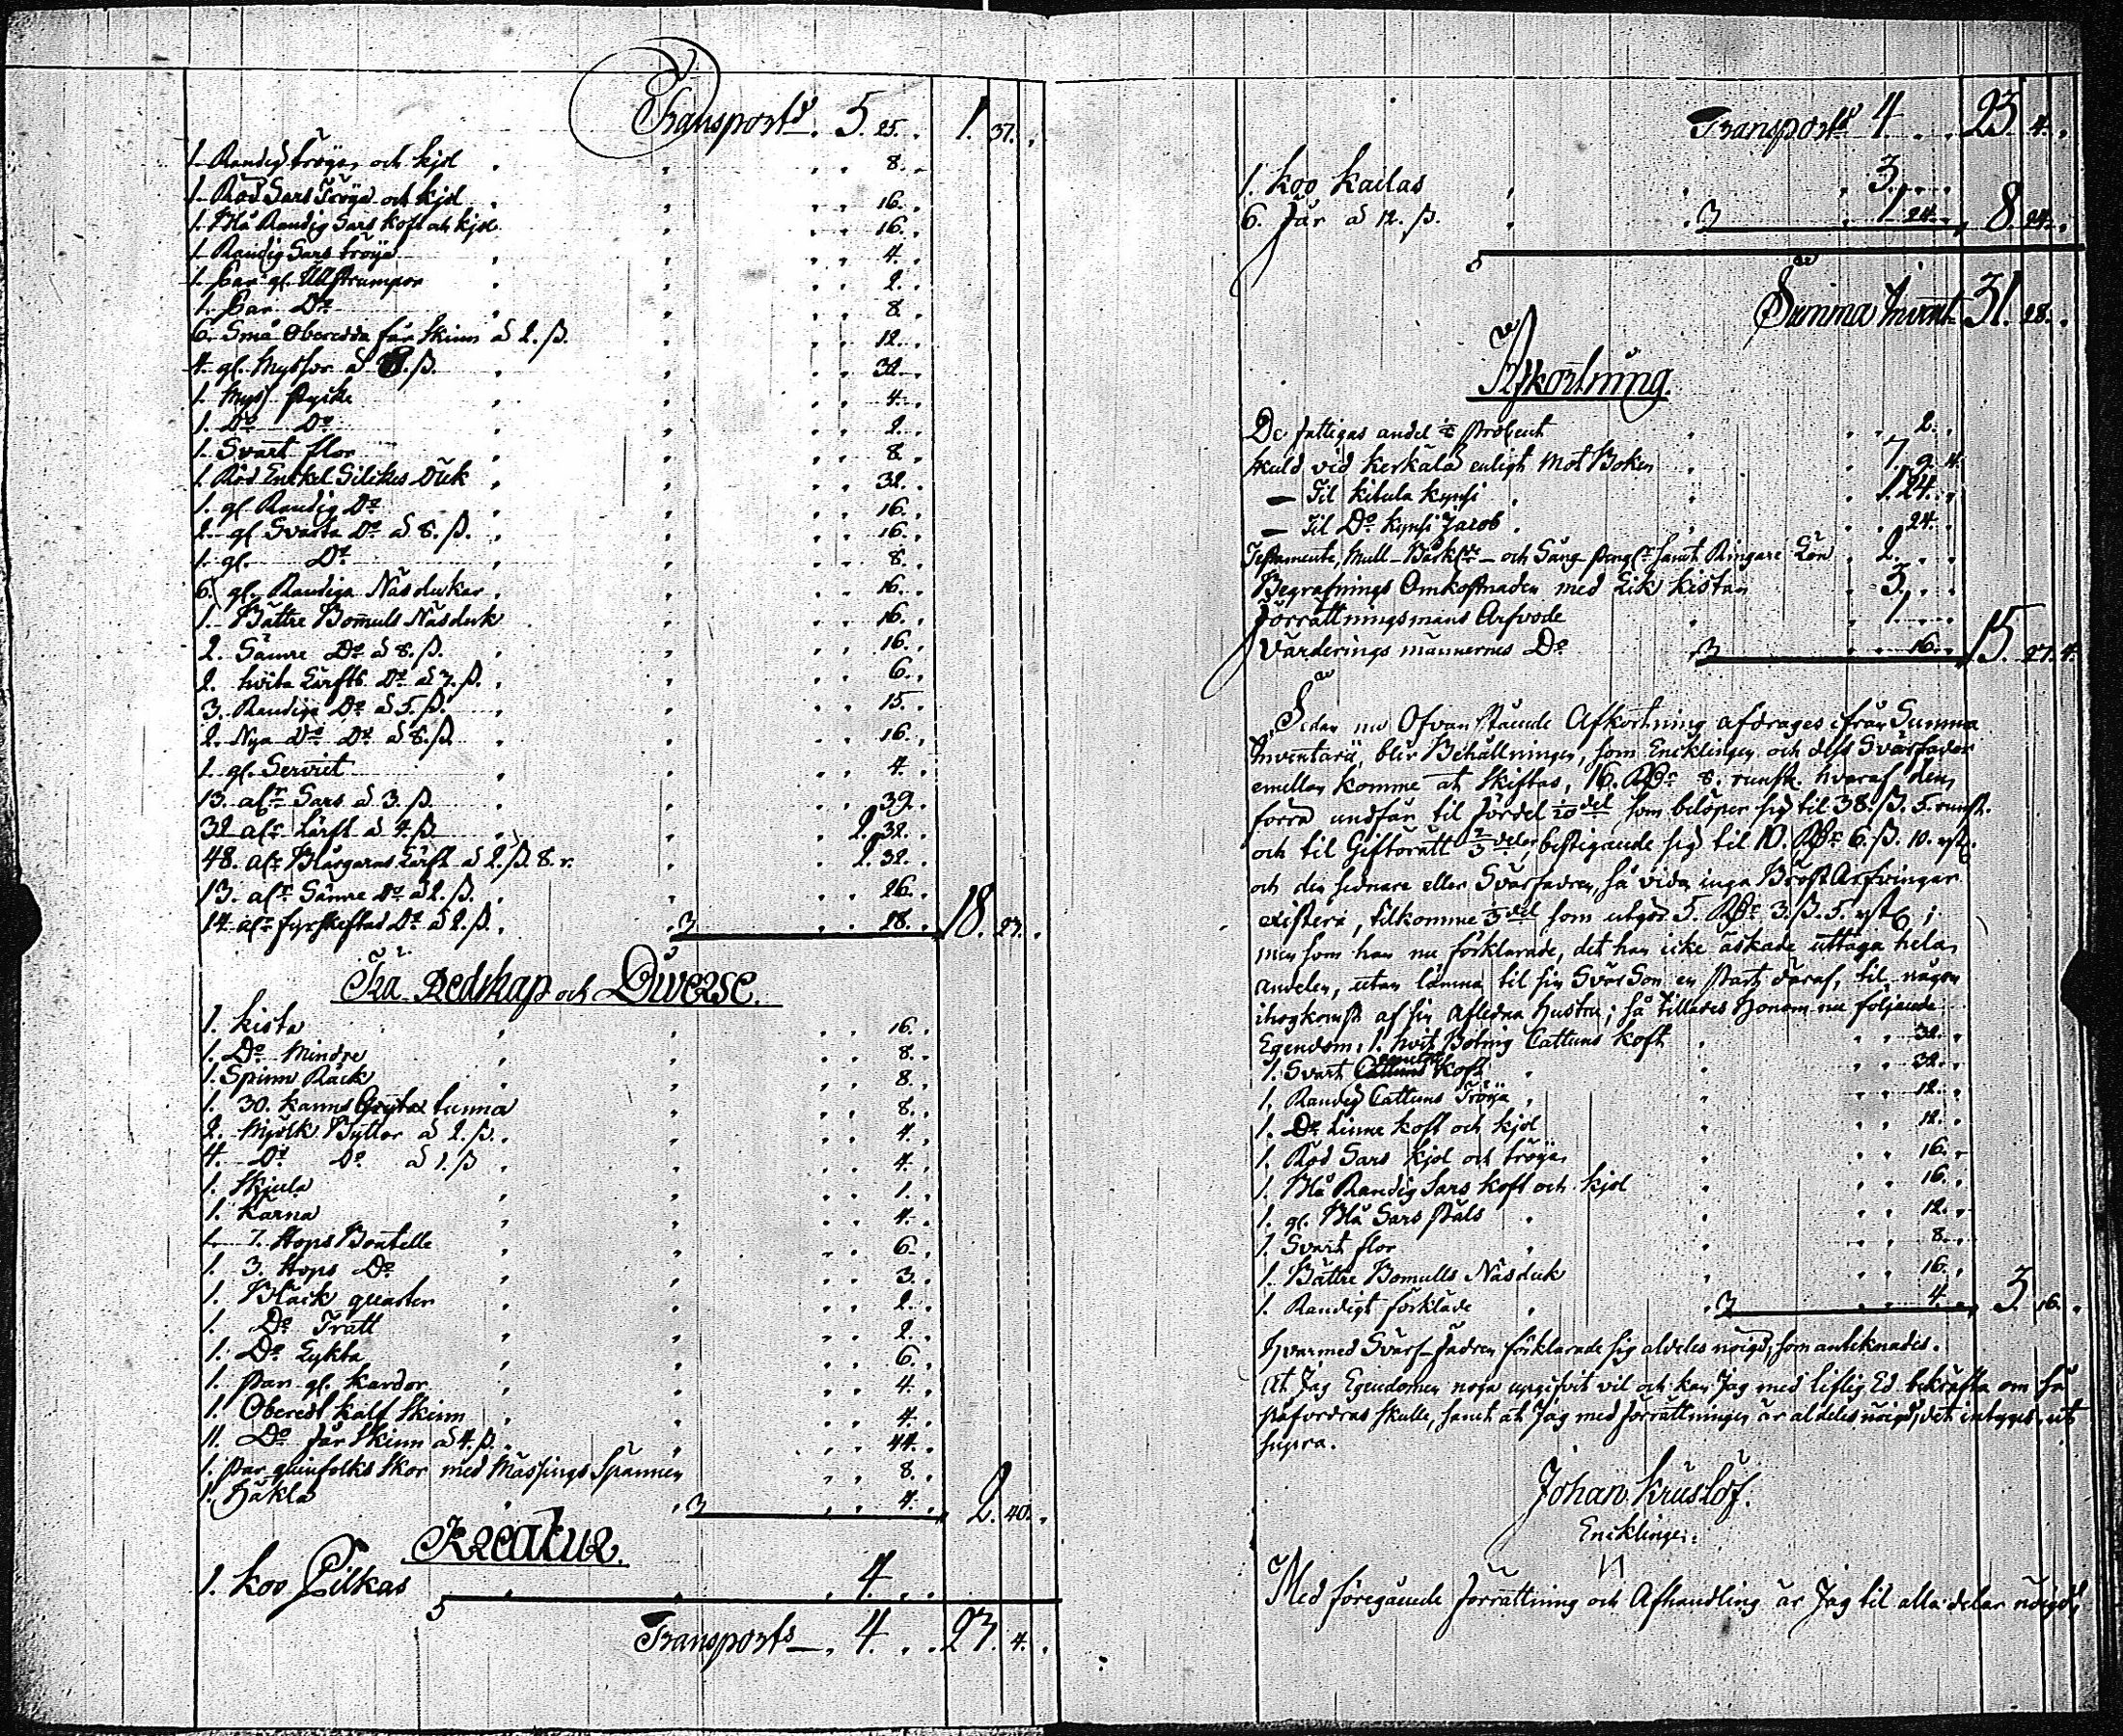 Transport 5. 25. 1. 37.
1. Randig tröya och kjol 8.
1. Röd Sars Tröya och kjol 16.
1. Blå Randig Sars koft och kjol 16.
1. Randig Sars tröya 4.
1. Par gl. Ullstrumpor 2.
1. Par Do 8.
6. Små Oberedda får Skinn á 2. ß. 12.
4. gl. Myssor á 8. ß. 32.
1. Myss stycke 4.
1. Do Do 2.
1. Svart flor 8.
1. Röd Enckel Silckes Duk 32.
1. gl. Randig Do 16.
2. gl Svarta Do á 8. ß. 16.
1. gl. Do 8.
6. gl. Randiga Näsdukar 16.
1. Bättre Bomuls Näsduk 16.
2. Sämre Do á 8. ß. 16.
2. hvita Lärfts Do á 3. ß. 6.
3. Randiga Do á 5. ß. 15.
2. Nya Do Do á 8. ß. 16.
1. gl. Serviet 4.
13. alr Sars á 3. ß. 39.
32 alr Lärft á 4. ß. 2. 32.
48. alr Blårgarns Lärft á 2. ß. 8. r. 2. 32.
13. alr Sämre Do á 2. ß. 26.
14 alr fyrskeftad Do á 2. ß. 28. 18. 23.
Trä Redskap och Diverse.
1. kista 16.
1. Do Mindre 8.
1. Spinn Råck 8.
1. 30. kanns tunna 8.
2. Mjölk Byttor á 2. ß. 4.
4. Do Do á 1. ß 4.
1. Skjula 1.
1. Kärna 4.
1. 7. stops Boutelle 6.
1. 3. stops Do 3.
1. Bläck quarter 2.
1. Do Tratt 2.
1. Do Lykta 6.
1. Par gl. kardor 4.
1. Oberedt kalf Skinn 4.
11. Do får Skinn á 4. ß. 44.
1. Par quinfolks Skor med Mässings Spännen 8.
1. Häkla 4. 2. 40.
Kreatur.
1. koo Pilkas 4.
Transport 4. 23. 4.
Transport 4 23. 4.
1. koo kailas 3.
6. får á 12. ß. 1. 24. 8. 24.
Summa Invent. 31. 28.
Afkortning.
De fattigas andel 1/8 procent 2.
Skuld vid kerkala enligt Mot Boken 7. 9. 4.
— Til kitula kynsi 1. 24.
— Til Do kynsi Jacob 24.
Testamente, Mull- och Sång samt Ringare Lön 2.
Begrafnings Omkostnaden med Lik kistan 3.
Förrättningsmans Arfvode 1.
Värderings männernes Do 16. 15. 27. 4.
Sedan nu Ofvanstående Afkortning afdrages ifrån Summa
Inventarii, blir Behållningen, som Encklingen och dess Svärfader
emellan komme at skiftas, 16. RDr 8. runst. hvaraf den
förra undfår til Fördel 1/20 del som belöper sig til 38. ß. 5. runst.
och til Giftorätt 2/3 delar, bestigande sig til 10. RDr 6. ß. 10. rst.
och den sednare eller Svärfadren, så vida inga Bröst Arfvingar
existera, tilkomme 1/3 del som utgör 5. RDr 3. ß. 5. rst;
men som han nu förklarade, det han icke äskade uttaga hela
andelen, utan lämna til sin Svär Son en part däraf, til någon
ihogkomst af sin Afledna Hustru; så tillades Honom nu följande
Egendom: 1. hvit Botnig Cattuns koft 32.
1. Svart koft 32.
1. Randig Cattuns Tröya 12.
1. Do Linne koft och kjol 12.
1. Röd Sars kjol och tröya 16.
1. Blå Randig Sars koft och kjol 16.
1. gl. Blå Sars Päls 12.
1. Svart flor 8.
1. Bättre Bomulls Näsduk 16.
1. Randigt förkläde 4. 3. 16.
Hvarmed Svärfadren förklarade sig aldeles nöigd, som anteknades.
At Jag Egendomen noga upgifvit vil och kan Jag med liflig Ed bekräfta om så
påfordras skulle, samt at Jag med förrättningen är aldeles nöigd, det intygas, ut
supra.
Johan Kruslöf.
Encklinge.
Med föregående förrättning och Afhandling är Jag til alla delar nöigd,